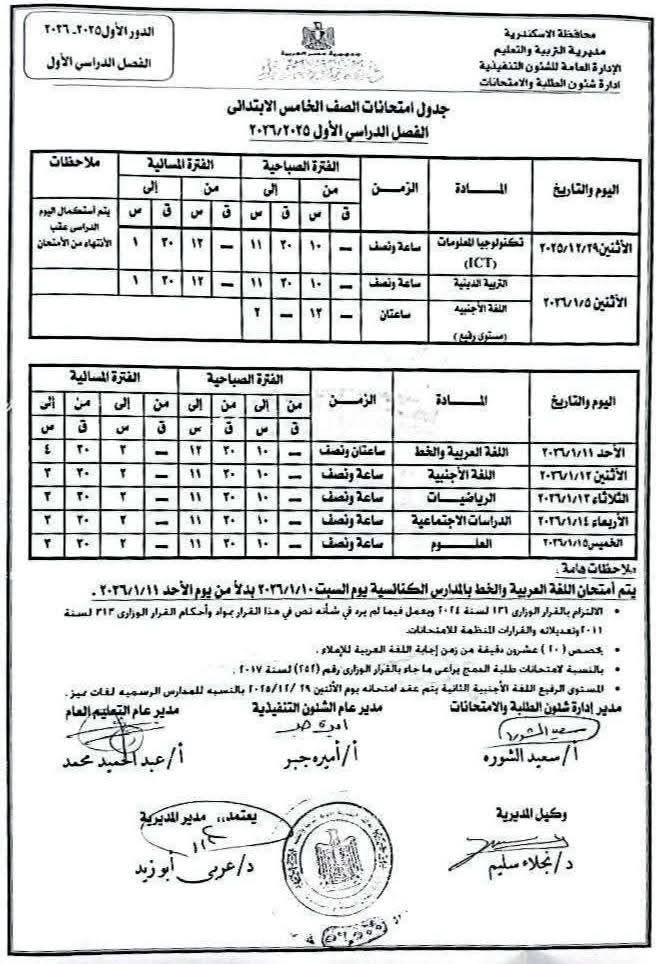 محافظة الاسكندرية
مديرية التربية والتعليم
الإدارة العامة للشئون التنفيذية
ادارة شئون الطلبة والامتحانات
الدور الأول ٢٠٢٥ـ ٢٠٢٦
الفصل الدراسي الأول
جدول امتحانات الصف الخامس الابتدائى
الفصل الدراسي الأول ٢٠٢٦/٢٠٢٥
اليوم والتاريخ المــــادة الزمـــن الفترة الصباحية الفترة المسائية ملاحظات
من إلى من إلى
ق س ق س ق س ق س
الأثنين ٢٠٢٥/١٢/٢٩ تكنولوجيا المعلومات (ICT) ساعة ونصف — ١٠ ٣٠ ١١ — ١٢ ٣٠ ١ يتم أستكمال اليوم الدراسى عقب الأنتهاء من الأمتحان
الأثنين ٢٠٢٦/١/٥ التربية الدينية ساعة ونصف — ١٠ ٣٠ ١١ — ١٢ ٣٠ ١
اللغة الأجنبيه (مستوى رفيع) ساعتان — ١٢ — ٢
اليوم والتاريخ المــــادة الزمـــن الفترة الصباحية الفترة المسائية
من إلى من إلى من إلى من إلى
ق س ق س ق س ق س
الأحد ٢٠٢٦/١/١١ اللغة العربية والخط ساعتان ونصف — ١٠ ٣٠ ١٢ — ٢ ٣٠ ٤
الأثنين ٢٠٢٦/١/١٢ اللغة الأجنبية ساعة ونصف — ١٠ ٣٠ ١١ — ٢ ٣٠ ٣
الثلاثاء ٢٠٢٦/١/١٣ الرياضيــات ساعة ونصف — ١٠ ٣٠ ١١ — ٢ ٣٠ ٣
الأربعاء ٢٠٢٦/١/١٤ الدراسات الاجتماعية ساعة ونصف — ١٠ ٣٠ ١١ — ٢ ٣٠ ٣
الخميس ٢٠٢٦/١/١٥ العلـــوم ساعة ونصف — ١٠ ٣٠ ١١ — ٢ ٣٠ ٣
ملاحظات هامة :
يتم أمتحان اللغة العربية والخط بالمدارس الكنائسية يوم السبت ٢٠٢٦/١/١٠ بدلاً من يوم الأحد ٢٠٢٦/١/١١ .
• الالتزام بالقرار الوزارى ١٣٦ لسنة ٢٠٢٤ ويعمل فيما لم يرد في شأنه نص في هذا القرار بمواد وأحكام القرار الوزارى ٣١٣ لسنة
٢٠١١ وتعديلاته والقرارات المنظمة للامتحانات.
• يخصص (٢٠) عشرون دقيقة من زمن إجابة اللغة العربية للإملاء .
• بالنسبة لامتحانات طلبة الدمج يراعى ما جاء بالقرار الوزارى رقم (٢٥٢) لسنة ٢٠١٧ .
• المستوى الرفيع اللغة الأجنبية الثانية يتم عقد امتحانه يوم الأثنين ٢٩ /٢٠٢٥/١٢ بالنسبه للمدارس الرسميه لغات
مدير إدارة شئون الطلبة والامتحانات مدير عام الشئون التنفيذية مدير عام التعليم العام
أ/سعيد الشوره أ/أميره جبر أ/عبد الحميد محمد
وكيل المديرية يعتمد،، مدير المديرية
د/نجلاء سليم د/عربى أبو زيد